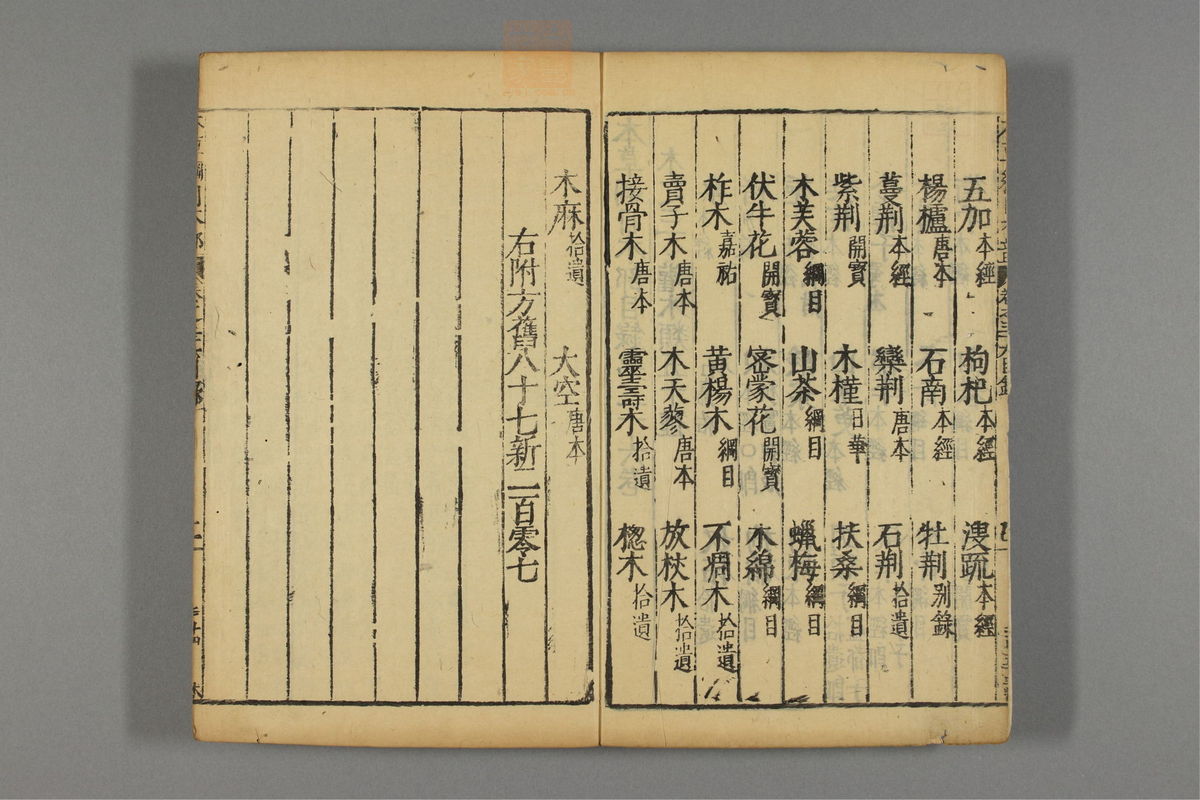 五加本經 枸杞本經 溲疏本經
楊櫨唐本 石南本經 牡荆别錄
蔓荆本經 欒荆唐本 石荆拾遺
紫荆開寶 木槿日華 扶桑綱目
木芙蓉綱目 山茶綱目 蠟梅綱目
伏牛花開寶 密蒙花開寶 木綿綱目
柞木嘉祐 黄楊木綱目 不凋木拾遺
賣子木唐本 木天蓼唐本 放杖木拾遺
接骨木唐本 靈壽木拾遺 楤木拾遺
木麻拾遺 大空唐本
右附方舊八十七新二百零七